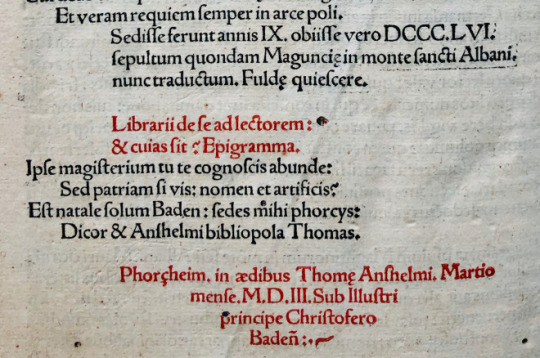 Et veram requiem semper in arce poli.
Sedisse ferunt annis IX. obiisse vero DCCC.LVI.
sepultum quondam Maguncię in monte sancti Albani.
nunc traductum. Fuldę quiescere.
Librarii de se ad lectorem:
& cuias sit ? Epigramma.
Ipse magisterium tu te cognoscis abunde:
Sed patriam si vis: nomen et artificis?
Est natale solum Baden: sedes mihi phorcys:
Dicor & Anshelmi bibliopola Thomas.
Phorçheim. in ædibus Thomę Anshelmi. Martio
mense. M.D.III. Sub Illustri
principe Christofero
Badeñ: